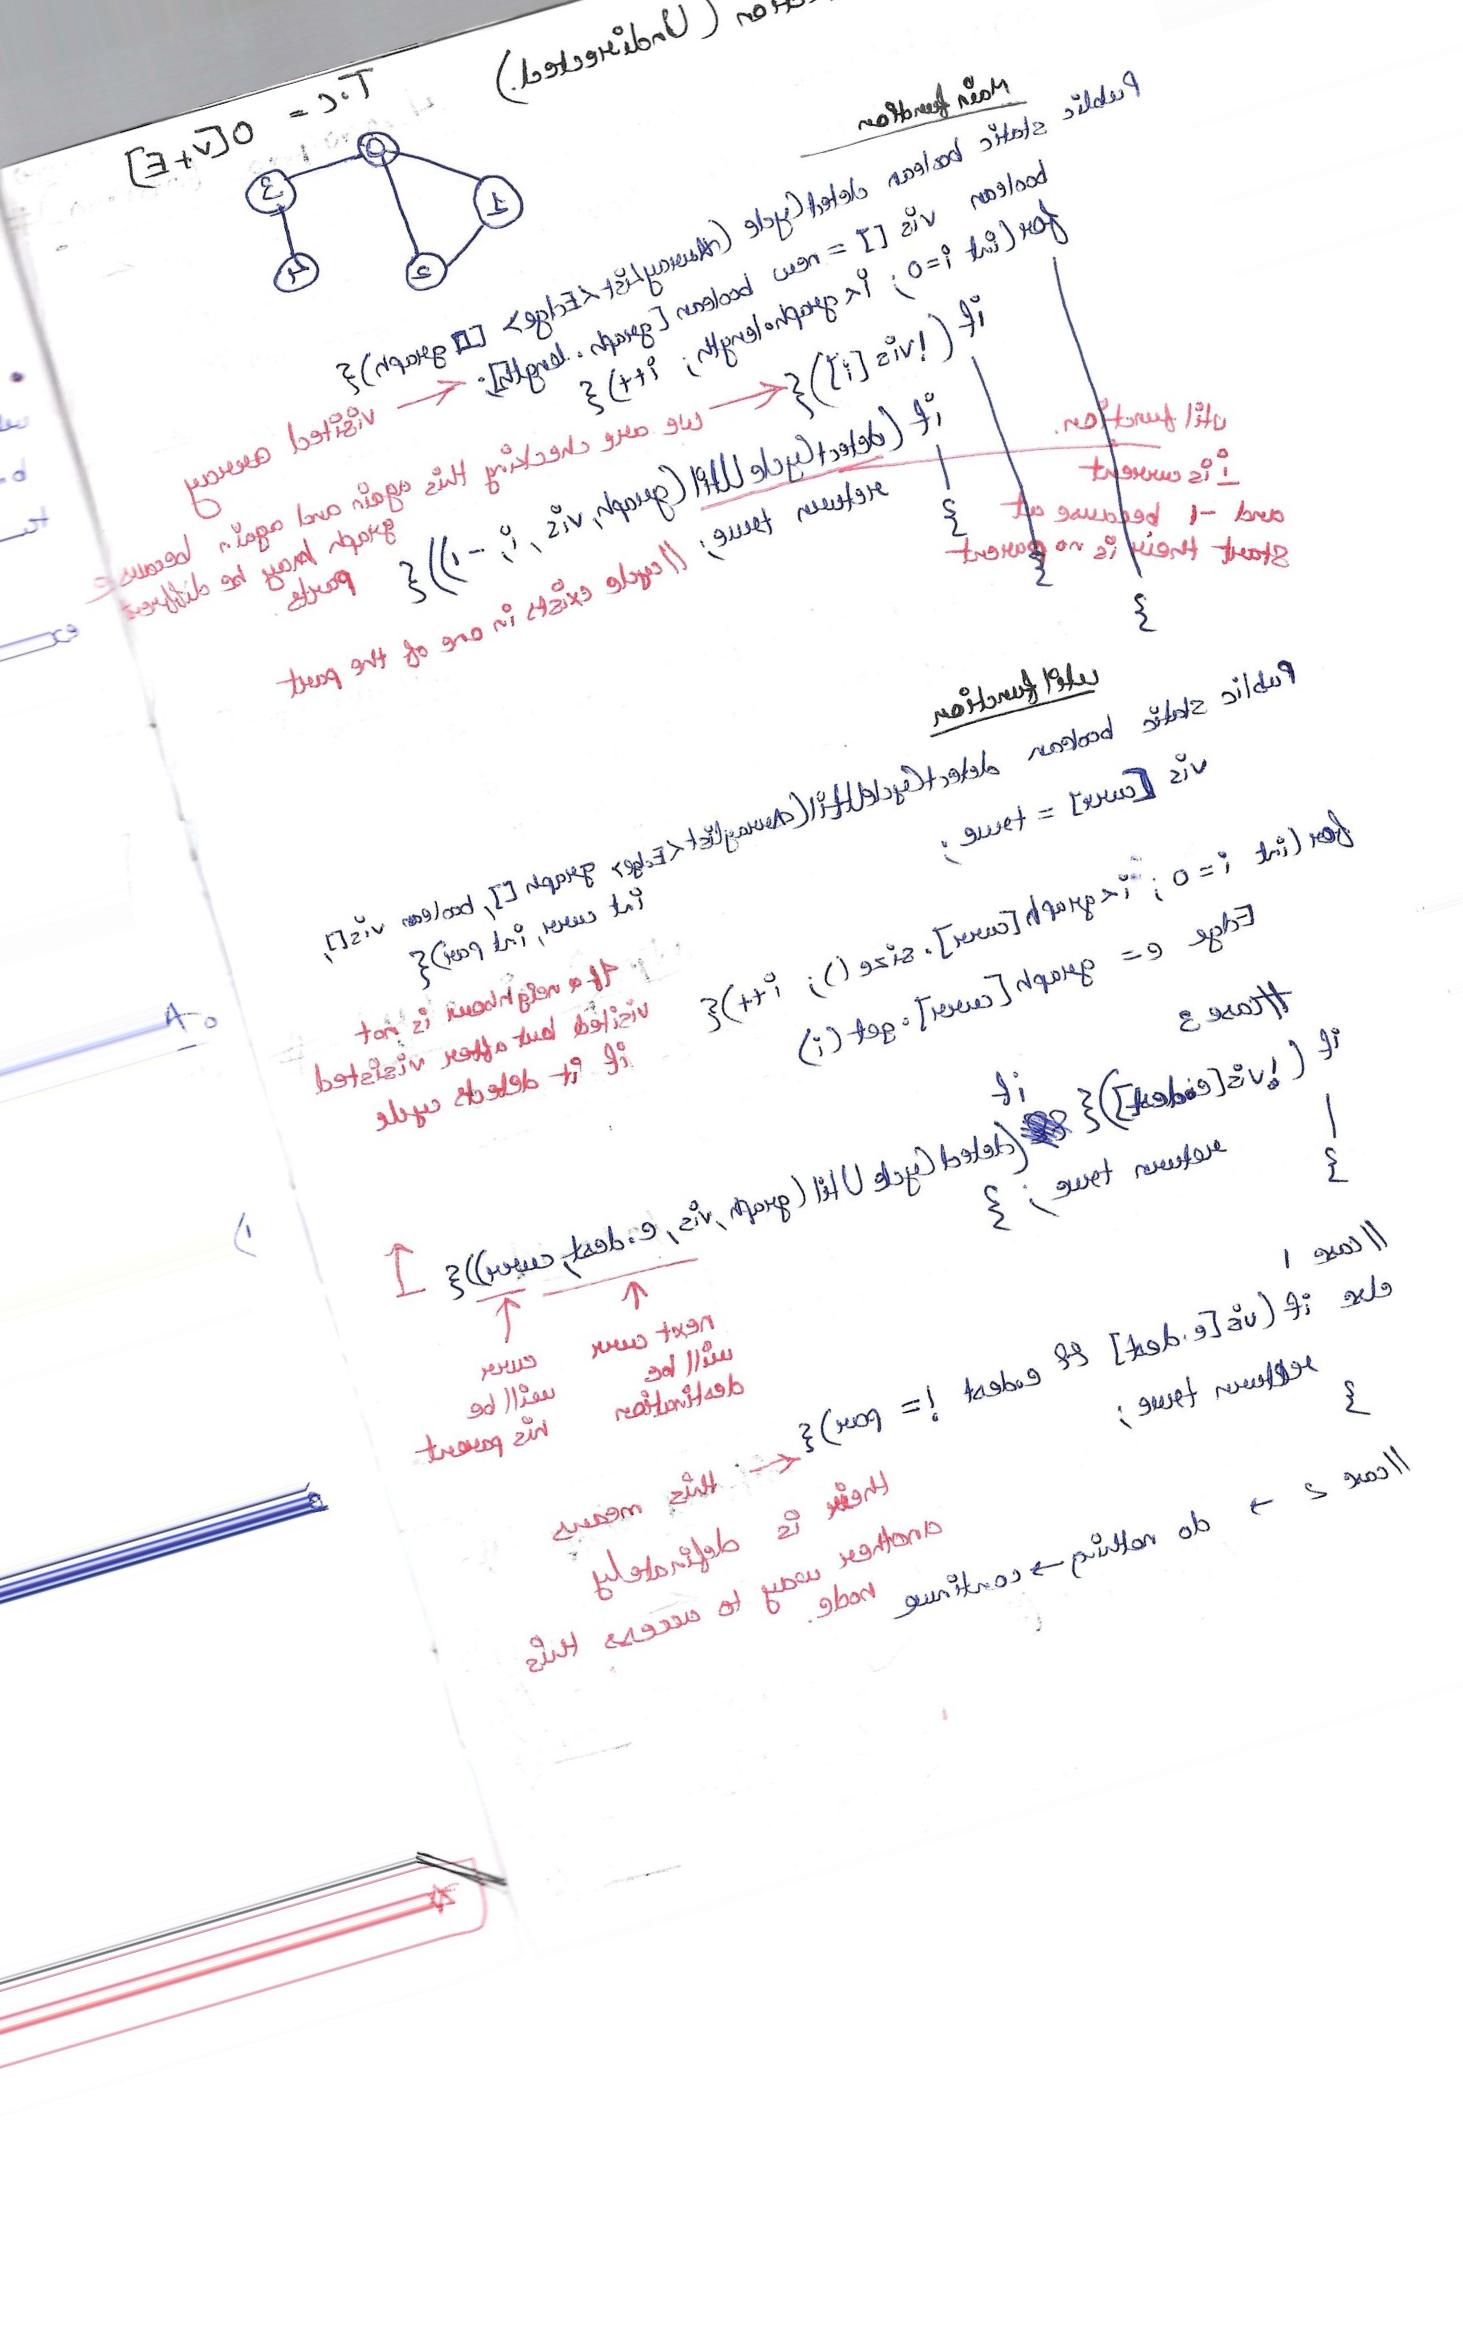 (Undirected)
T.C = O[V+E]
0
3
1
4
2
Main function
Public static boolean detectCycle (ArrayList<Edge> [] graph){
boolean vis [] = new boolean [graph.length];
visited array
for(int i=0; i<graph.length; i++){
if (!vis[i]){
we are checking this again and again because
graph may be different
parts.
if (detectCycleUtil (graph, vis, i, -1)){
return true; // cycle exists in one of the part
}
}
}
util function.
i is current
and -1 because at
start their is no parent
util function
Public static boolean detectCycleUtil(ArrayList<Edge> graph [], boolean vis[],
int curr, int par){
vis [curr] = true ;
for(int i=0; i<graph[curr].size(); i++){
Edge e = graph [curr].get(i)
If a neighbour is not
visited but after visisted
if it detects cycle
//case 3
if (!vis[e.dest]){
if (detectCycle Util (graph, vis, e.dest, curr)){
return true; }
}
next curr
will be
destination
curr
will be
his parent
//case 1
else if (vis[e.dest] && e.dest != par){
return true ;
}
this means
their is definately
another way to access this
node.
//case 2 → do nothing → continue